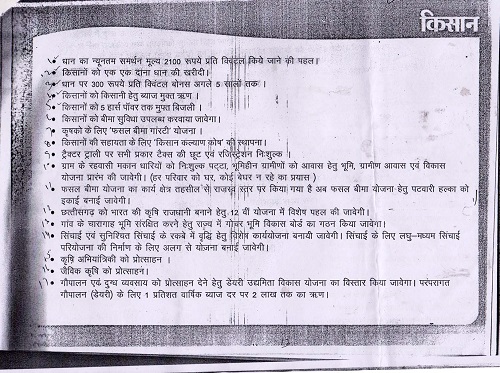 किसान
धान का न्यूनतम समर्थन मूल्य 2100 रूपये प्रति क्विंटल किये जाने की पहल।
किसानों को एक एक दाना धान की खरीदी।
धान पर 300 रूपये प्रति क्विंटल बोनस अगले 5 सालों तक ।
किसानों को किसानी हेतु ब्याज मुक्त ऋण ।
किसानों को 5 हार्स पॉवर तक मुफ्त बिजली ।
किसानों को बीमा सुविधा उपलब्ध करवाया जावेगा।
कृषको के लिए 'फसल बीमा गांरटी' योजना ।
किसानों की सहायता के लिए 'किसान कल्याण कोष' की स्थापना।
ट्रैक्टर ट्राली पर सभी प्रकार टैक्स की छूट एवं रजिस्ट्रेशन निःशुल्क ।
ग्राम के रहवासी मकान धारियों को निःशुल्क पट्टा, भूमिहीन ग्रामीणों को आवास हेतु भूमि, ग्रामीण आवास एवं विकास
योजना प्रारंभ की जावेगी। (हर परिवार को घर, कोई बेघर न रहे का प्रयास )
फसल बीमा योजना का कार्य क्षेत्र तहसील से राजस्व स्तर पर किया गया है अब फसल बीमा योजना हेतु पटवारी हल्का को
इकाई बनाई जावेगी।
छत्तीसगढ़ को भारत की कृषि राजधानी बनाने हेतु 12 वी योजना में विशेष पहल की जावेगी।
गांव के चारागाह भूमि संरक्षित करने हेतु राज्य में गोचर भूमि विकास बोर्ड का गठन किया जावेगा।
सिंचाई एवं सुनिश्चित सिंचाई के रकबे में वृद्धि हेतु विशेष कार्ययोजना बनायी जावेगी। सिंचाई के लिए लघु-मध्यम सिंचाई
परियोजना की निर्माण के लिए अलग से योजना बनाई जावेगी।
कृषि अभियांत्रिकी को प्रोत्साहन ।
जैविक कृषि को प्रोत्साहन।
गौपालन एवं दुग्ध व्यवसाय को प्रोत्साहन देने हेतु डेयरी उद्यमिता विकास योजना का विस्तार किया जावेगा। परंपरागत
गौपालन (डेयरी) के लिए 1 प्रतिशत वार्षिक ब्याज दर पर 2 लाख तक का ऋण।